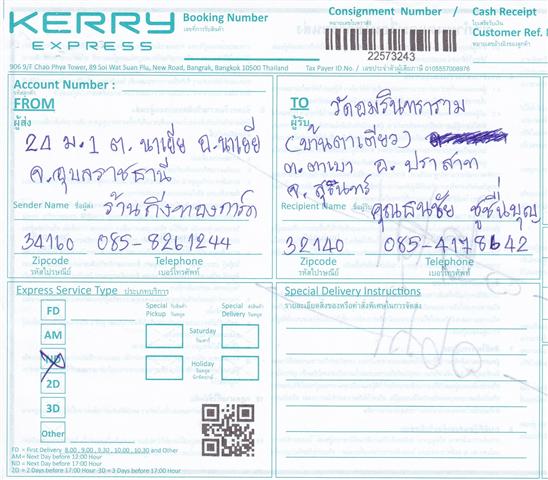 KERRY
EXPRESS
Booking Number
เลขที่การรับสินค้า
Consignment Number /
หมายเลขใบตราส่ง
Cash Receipt
ใบเสร็จรับเงิน
Customer Ref.
22573243
906 9/F Chao Phya Tower, 89 Soi Wat Suan Flu, New Road, Bangrak, Bangkok 10500 Thailand
Tax Payer ID.No. / เลขประจำตัวผู้เสียภาษี 0105557008976
Account Number :
รหัสลูกค้า
FROM
ผู้ส่ง
24 ม.1 ต.นาเยีย อ.นาเยีย
จ.อุบลราชธานี
Sender Name ชื่อผู้ส่ง ร้านกิ่งทองการ์ด
34160 085-8261244
Zipcode Telephone
รหัสไปรษณีย์ เบอร์โทรศัพท์
TO วัดอมรินทราราม
ผู้รับ (บ้านตาเตียว)
ต.ตาเบา อ.ปราสาท
จ.สุรินทร์
Recipient Name ชื่อผู้รับ คุณธนชัย ชูชื่นบุญ
32140 085-4178642
Zipcode Telephone
รหัสไปรษณีย์ เบอร์โทรศัพท์
Express Service Type ประเภทบริการ
FD
AM
ND
2D
3D
Other
Special Pickup รับสินค้าวันหยุด
Special Delivery ส่งสินค้าวันหยุด
Saturday
วันเสาร์
Holiday
วันหยุดนักขัตฤกษ์
FD = First Delivery 8.00 , 9.00 , 9.30 , 10.00 , 10.30 and Other
AM= Next Day before 12:00 Hour
ND = Next Day before 17:00 Hour
2D = 2 Days before 17:00 Hour 3D = 3 Days before 17:00 Hour
Special Delivery Instructions
รายละเอียดสิ่งของหรือคำสั่งพิเศษในการจัดส่ง